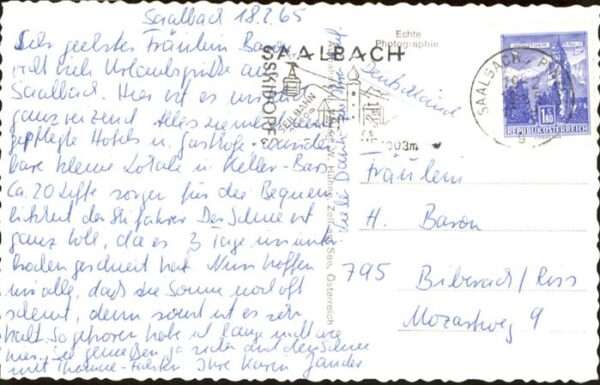 Saalbach 18.2.65
Sehr geehrtes Fräulein Baron
viele Urlaubsgrüße aus
Saalbach. Hier ist es
ganz reizend. Alles
gepflegte Hotels u. Gasthöfe
bare kleine Lokale u. Keller-Bars
Ca 20 Lifte sorgen für die Bequem
lichkeit der Skifahrer. Der Schnee ist
ganz toll, da es 3 Tage
geschneit hat. Nun hoffen
wir alle, daß die Sonne noch oft
scheint, denn sonst ist es sehr
kalt. So gefroren habe ich lange nicht wie
hier. Sie
mit Ihre Karen Gander
Vielen Dank für Ihre
Echte
Photographie
SAALBACH
SKIDORF
1003m
Zell am See, Österreich
SAALBACH
REPUBLIK ÖSTERREICH
Deutschland
Fräulein
H. Baron
795 Biberach/Riss
Mozartweg 9